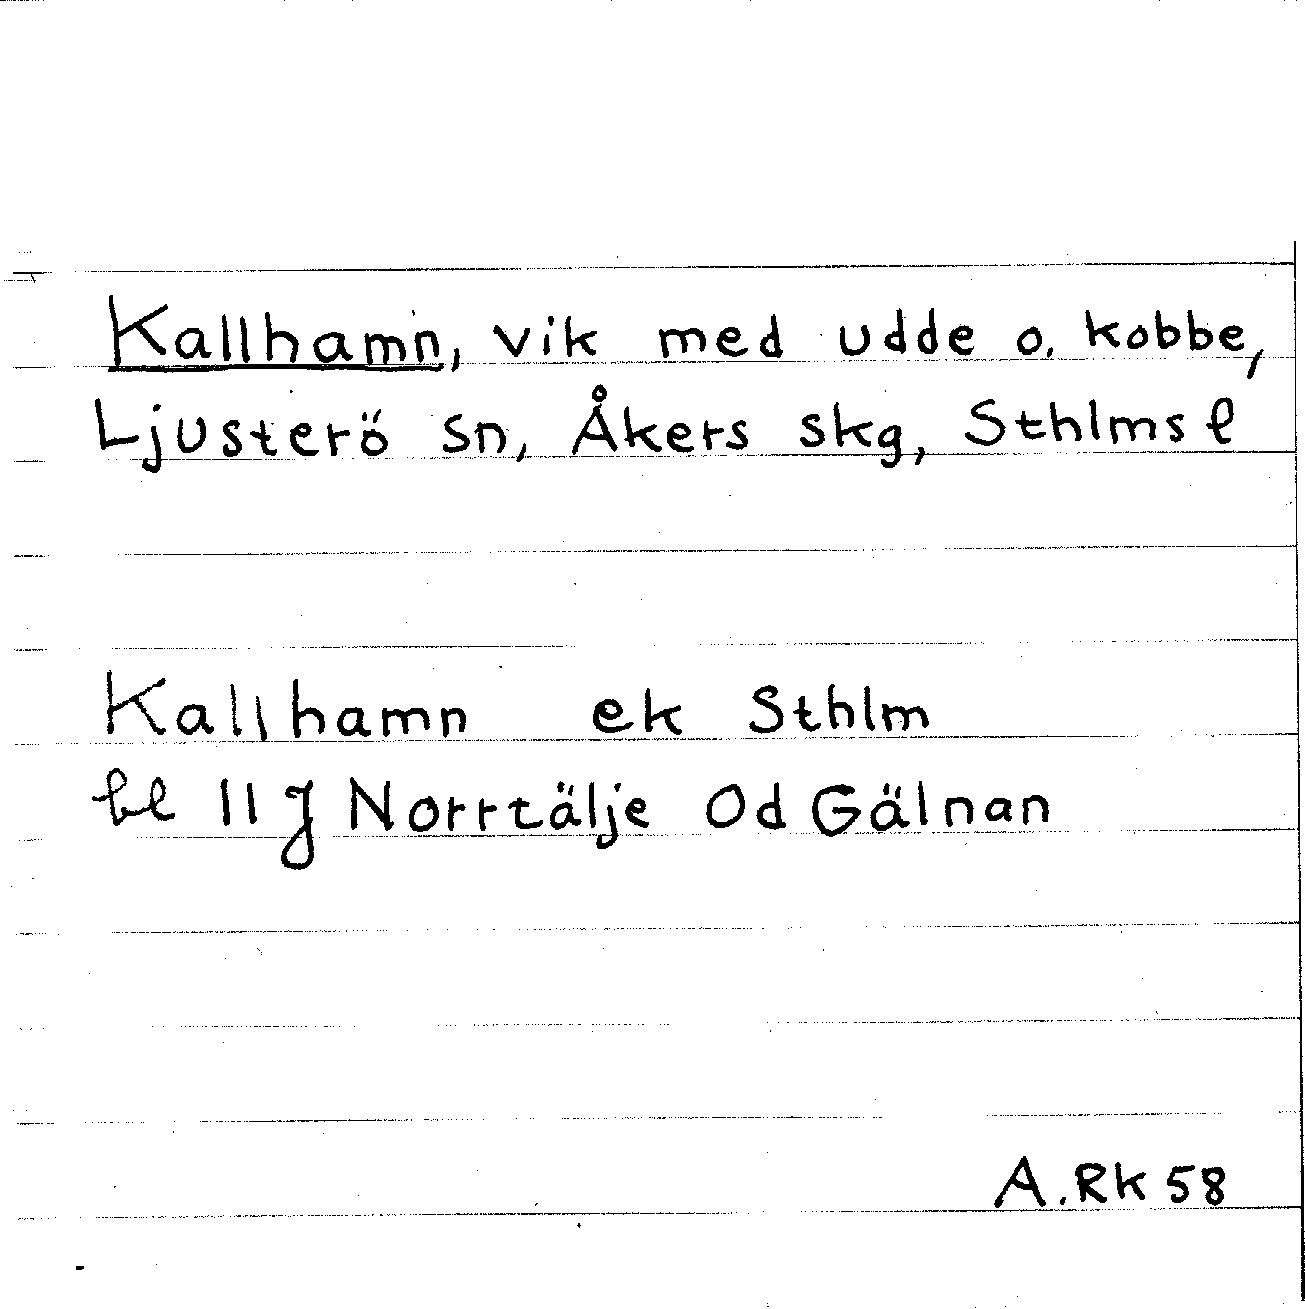 Kallhamn, vik med udde o. kobbe,
Ljusterö sn, Åkers skg, Sthlms l
Kallhamn ek Sthlm
bl 11 J Norrtälje Od Gälnan
A.RK 58